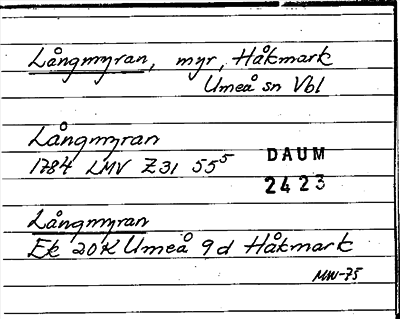 Långmyran, myr, Håkmark
Umeå sn Vbl
Långmyran
1784 LMV Z31 55⁵
DAUM
2423
Långmyran
Ek 20K Umeå 9d Håkmark
MW-75